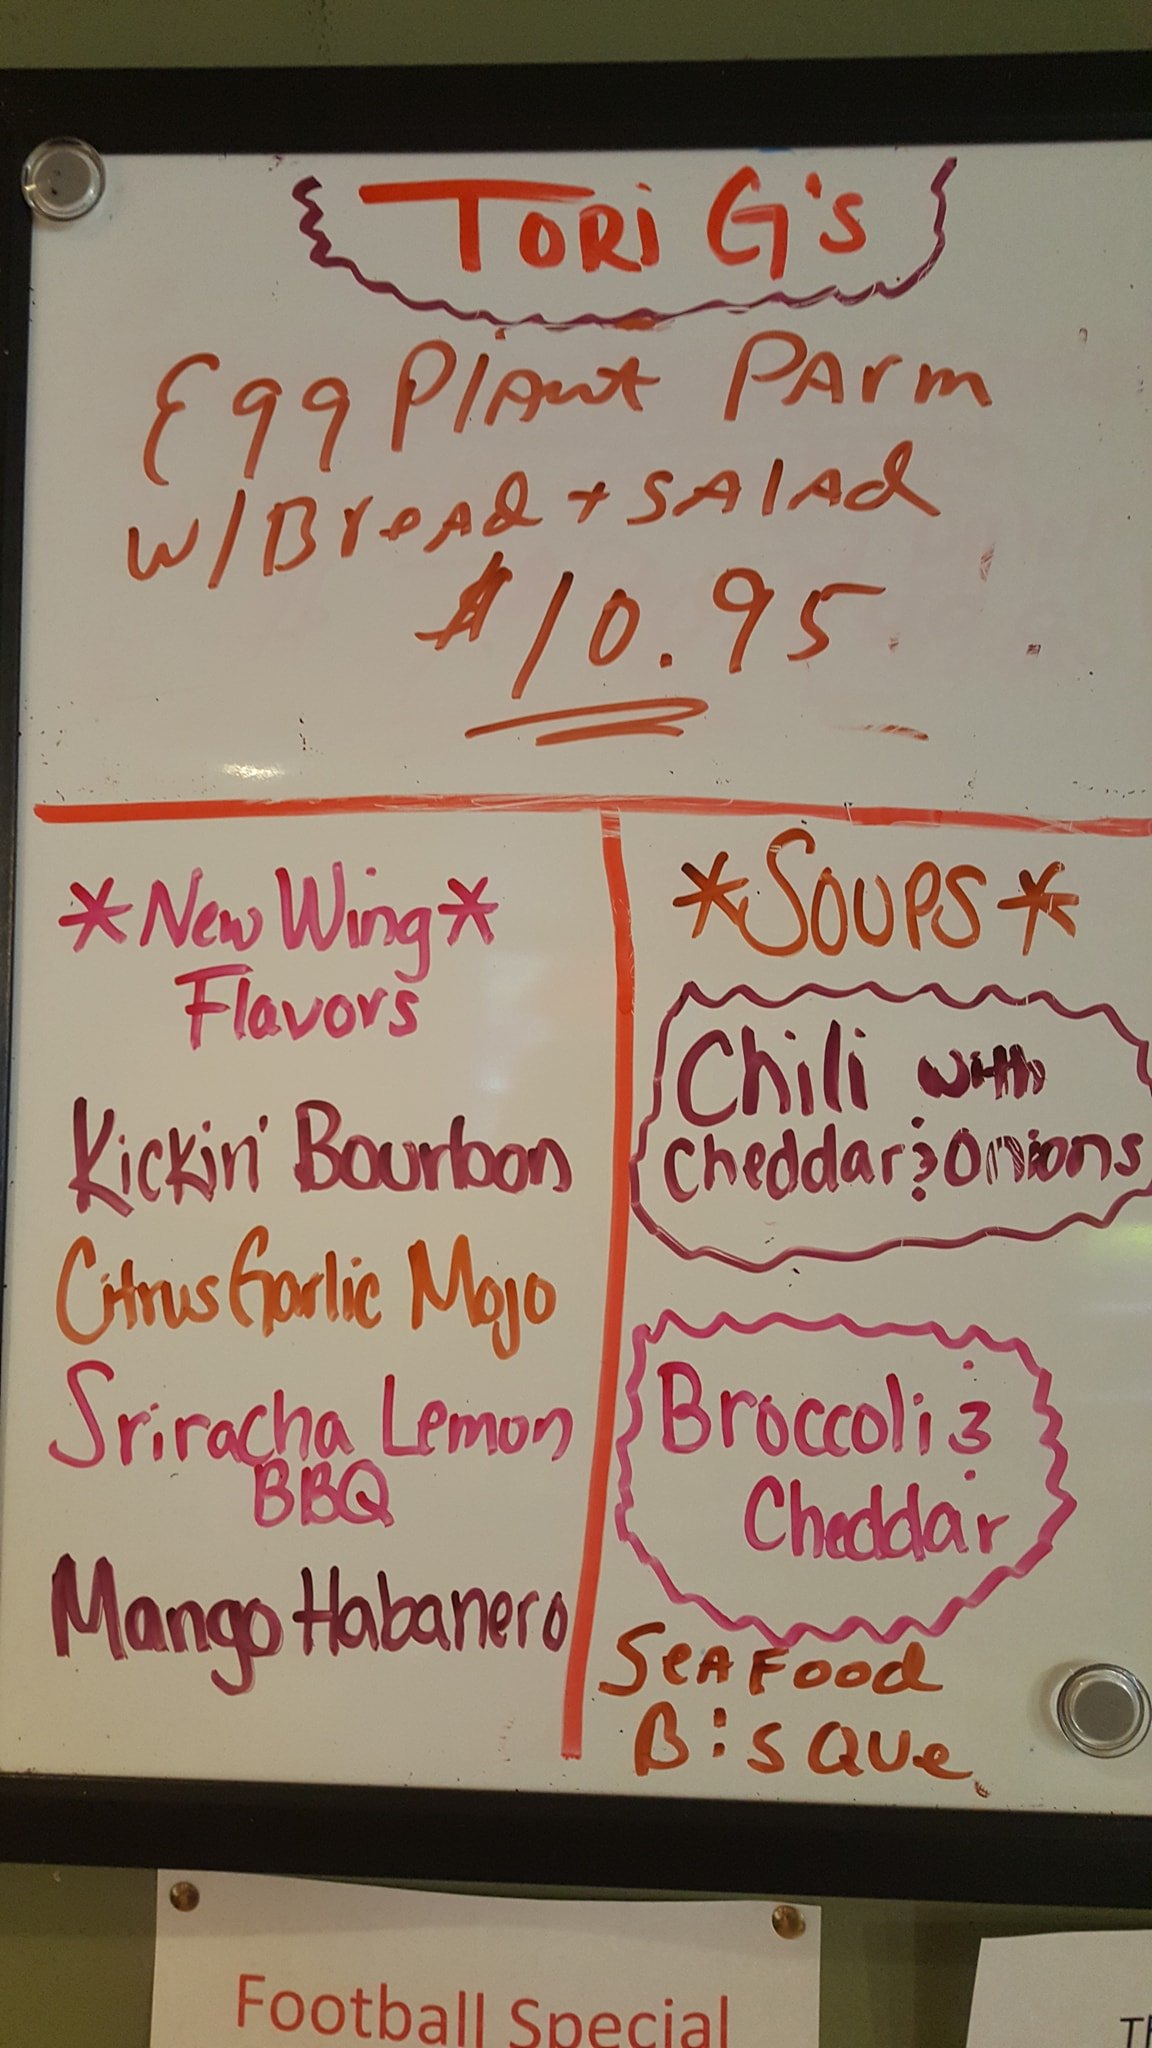 TORi G's
EggPlant PArm
w/Bread + SALAd
$10.95
*New Wing*
Flavors
Kickin' Bourbon
Citrus Garlic Mojo
Sriracha Lemon
BBQ
Mango Habanero
*SOUPS*
Chili with
Cheddar & Onions
Broccoli &
Cheddar
SeAFood
BisQue
Football Special